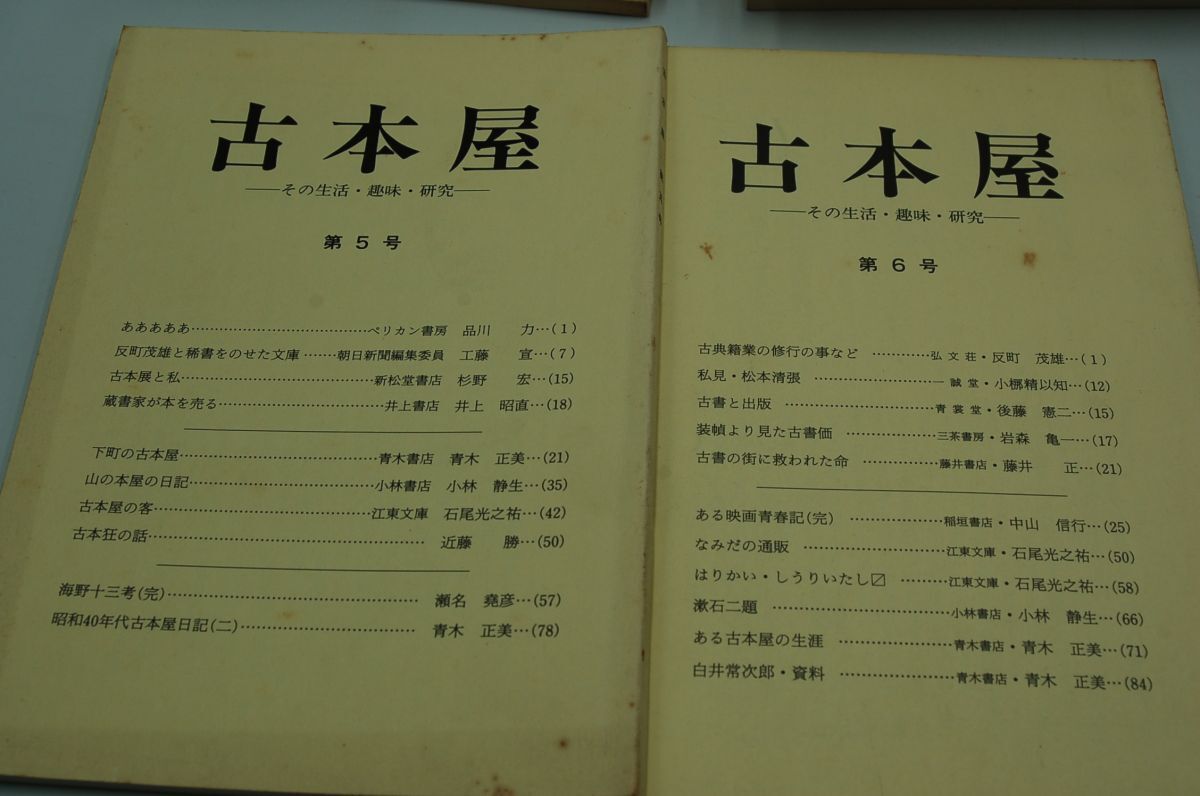 古本屋
――その生活・趣味・研究――
第 5 号
ああああああ……………………………ペリカン書房 品川 力…(1)
反町茂雄と稀書をのせた文庫……朝日新聞編集委員 工藤 宣…(7)
古本展と私………………………………新松堂書店 杉野 宏…(15)
蔵書家が本を売る…………………………井上書店 井上 昭直…(18)
下町の古本屋………………………………青木書店 青木 正美…(21)
山の本屋の日記……………………………小林書店 小林 静生…(35)
古本屋の客…………………………………江東文庫 石尾光之祐…(42)
古本狂の話……………………………………………近藤 勝…(50)
海野十三考(完)………………………………………瀬名 堯彦…(57)
昭和40年代古本屋日記(二)…………………………青木 正美…(78)
古本屋
――その生活・趣味・研究――
第 6 号
古典籍業の修行の事など …………弘文荘・反町 茂雄…(1)
私見・松本清張 ……………………一誠堂・小梛精以知…(12)
古書と出版 …………………………青裳堂・後藤 憲二…(15)
装幀より見た古書価 ………………三茶書房・岩森 亀一…(17)
古書の街に救われた命 ……………藤井書店・藤井 正…(21)
ある映画青春記(完) ………………稲垣書店・中山 信行…(25)
なみだの通販 ………………………江東文庫・石尾光之祐…(50)
はりかい・しうりいたし〼 ………江東文庫・石尾光之祐…(58)
漱石二題 ……………………………小林書店・小林 静生…(66)
ある古本屋の生涯 …………………青木書店・青木 正美…(71)
白井常次郎・資料 …………………青木書店・青木 正美…(84)